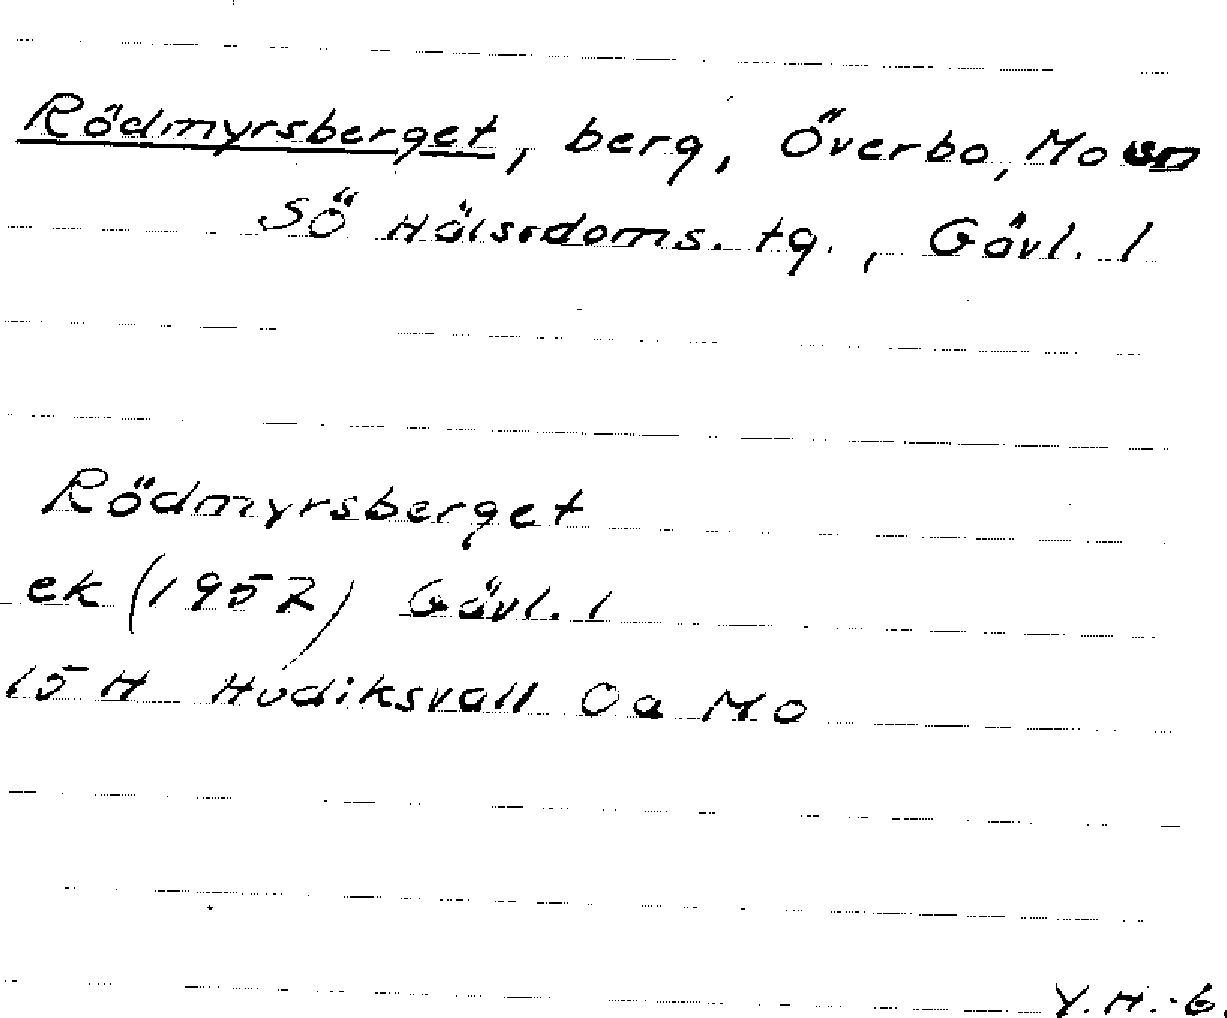 Rödmyrsberget, berg, Överbo, Mo sn
SÖ Häls. s. doms. tg., Gävl. l
Rödmyrsberget
ek (1952) Gävl. l
15 H Hudiksvall 0a Mo
Y.H.-G.